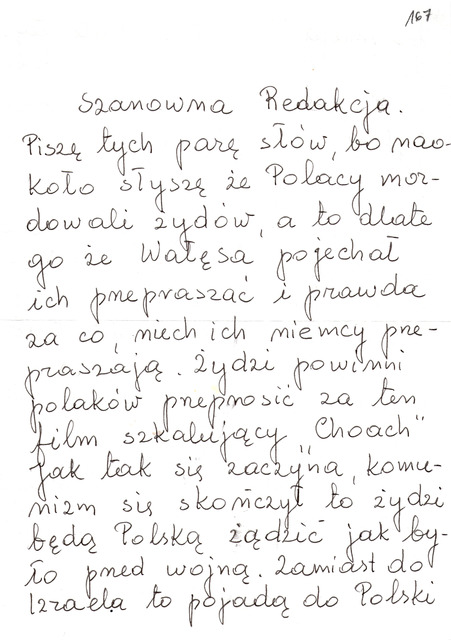 167
Szanowna Redakcja.
Piszę tych parę słów, bo nao-
koło słyszę że Polacy mor-
dowali żydów, a to dlate
go że Wałęsa pojechał
ich pnepraszać i prawda
za co, niech ich niemcy pne-
praszają. Żydzi powinni
polaków pnepnosić za ten
film szkalujący "Choach"
Jak tak się zaczyna, komu-
nizm się skończył to żydzi
będą Polską żądzić jak by-
ło pned wojną. Zamiast do
Izraela to pojadą do Polski